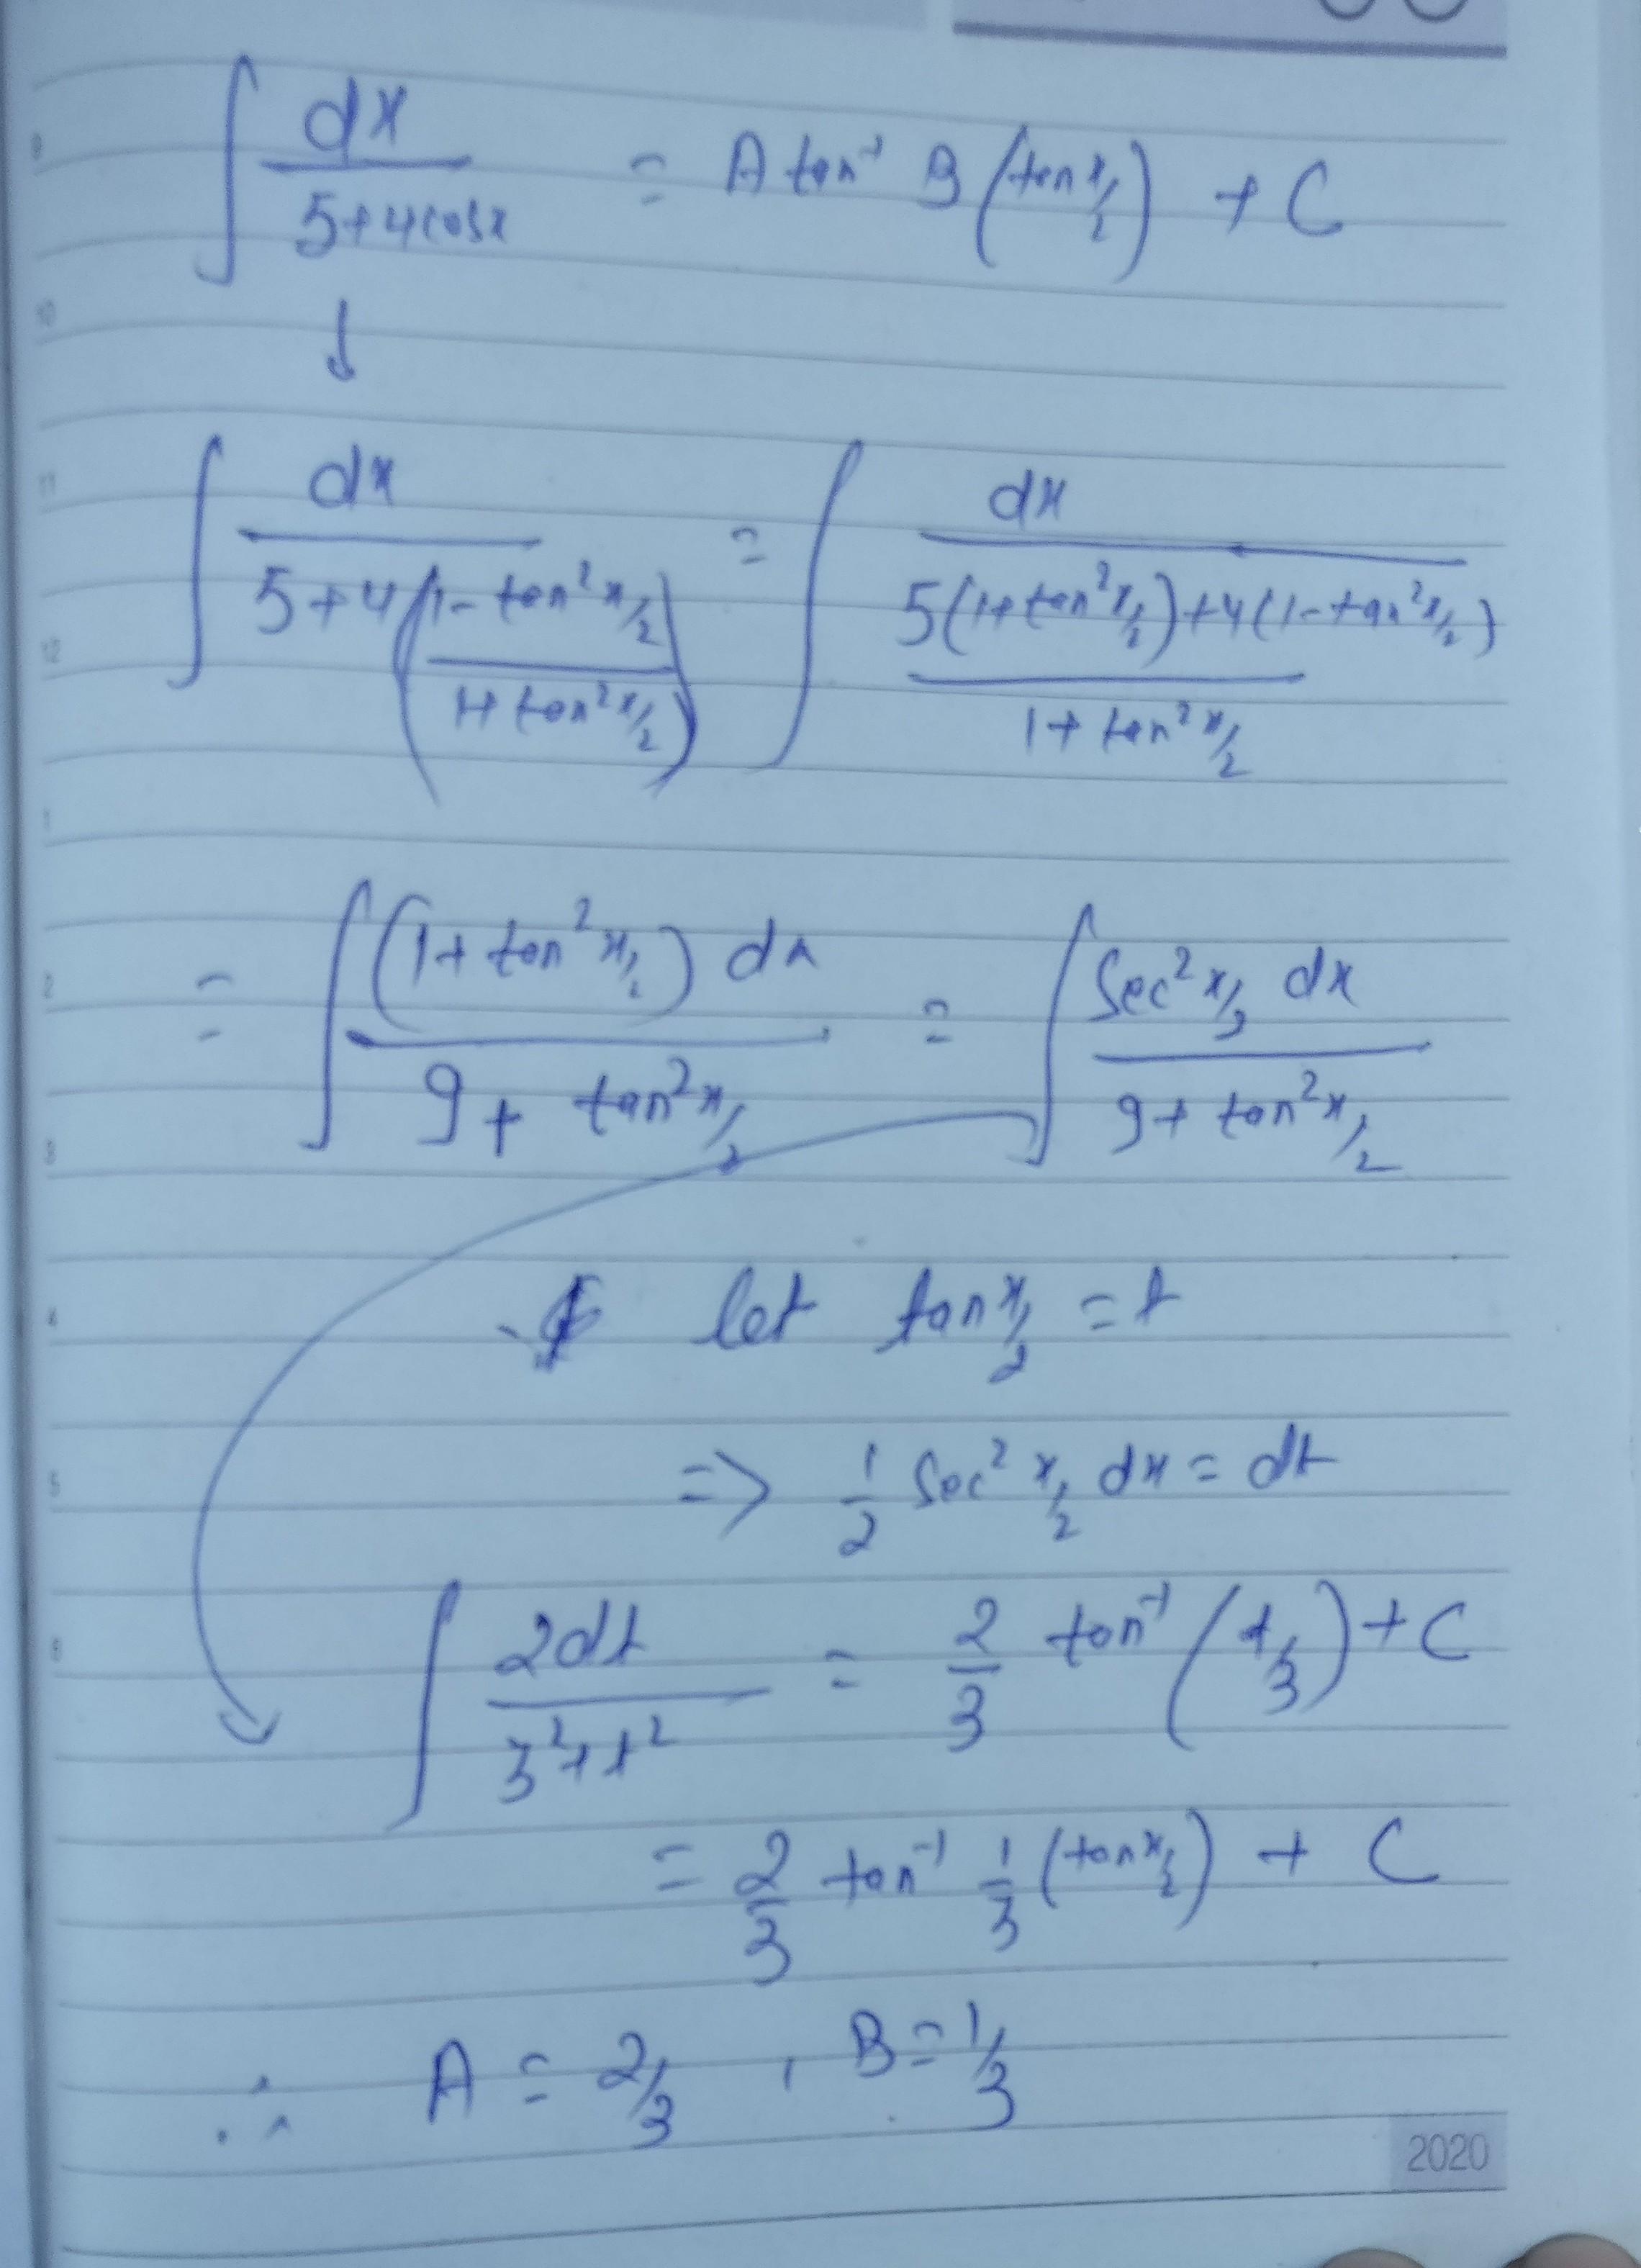 ∫ dx / (5+4cosx) = A tan⁻¹ B (tan x/2) + C
↓
∫ dx / (5+4((1-tan² x/2) / (1+tan² x/2))) = ∫ dx / ((5(1+tan² x/2)+4(1-tan² x/2)) / (1+tan² x/2))
= ∫ (1+tan² x/2) dx / (9+tan² x/2) = ∫ sec² x/2 dx / (9+tan² x/2)
let tan x/2 = t
=> 1/2 sec² x/2 dx = dt
∫ 2dt / (3²+t²) = 2/3 tan⁻¹ (t/3) + C
= 2/3 tan⁻¹ 1/3 (tan x/2) + C
∴ A = 2/3 , B = 1/3
2020